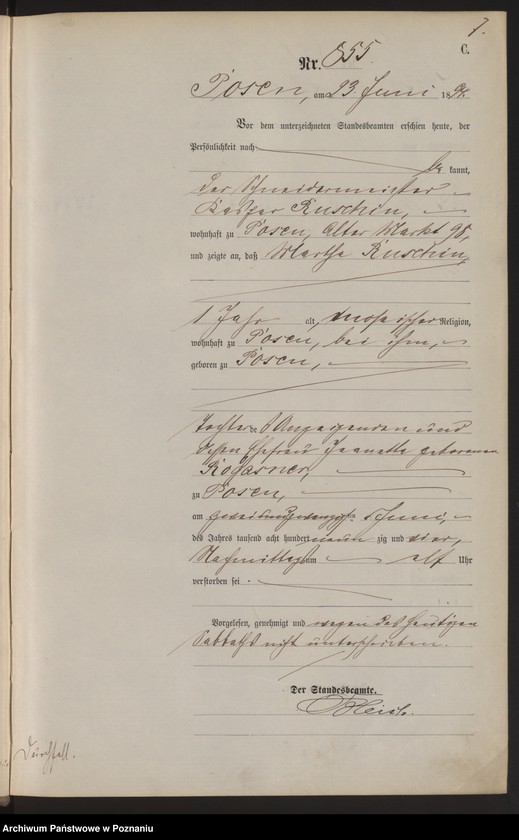 7.
C.
Nr. 855.
Posen, am 23. Juni 1894.
Vor dem unterzeichneten Standesbeamten erschien heute, der
Persönlichkeit nach
be kannt,
der Schneidermeister
Kasper Ruschin,
wohnhaft zu Posen, Alter Markt 95,
und zeigte an, daß Martha Ruschin,
1 Jahr alt, mosaischer Religion,
wohnhaft zu Posen, bei ihm,
geboren zu Posen,
Tochter des Anzeigenden und
dessen Ehefrau Jeanette geborenen
Rogasner,
zu Posen,
am zweiundzwanzigsten Juni,
des Jahres tausend acht hundert neun zig und vier,
Nachmittags um elf Uhr
verstorben sei.
Vorgelesen, genehmigt und wegen des heutigen
Sabbaths nicht unterschrieben.
Der Standesbeamte.
Durchfall.
Archiwum Państwowe w Poznaniu